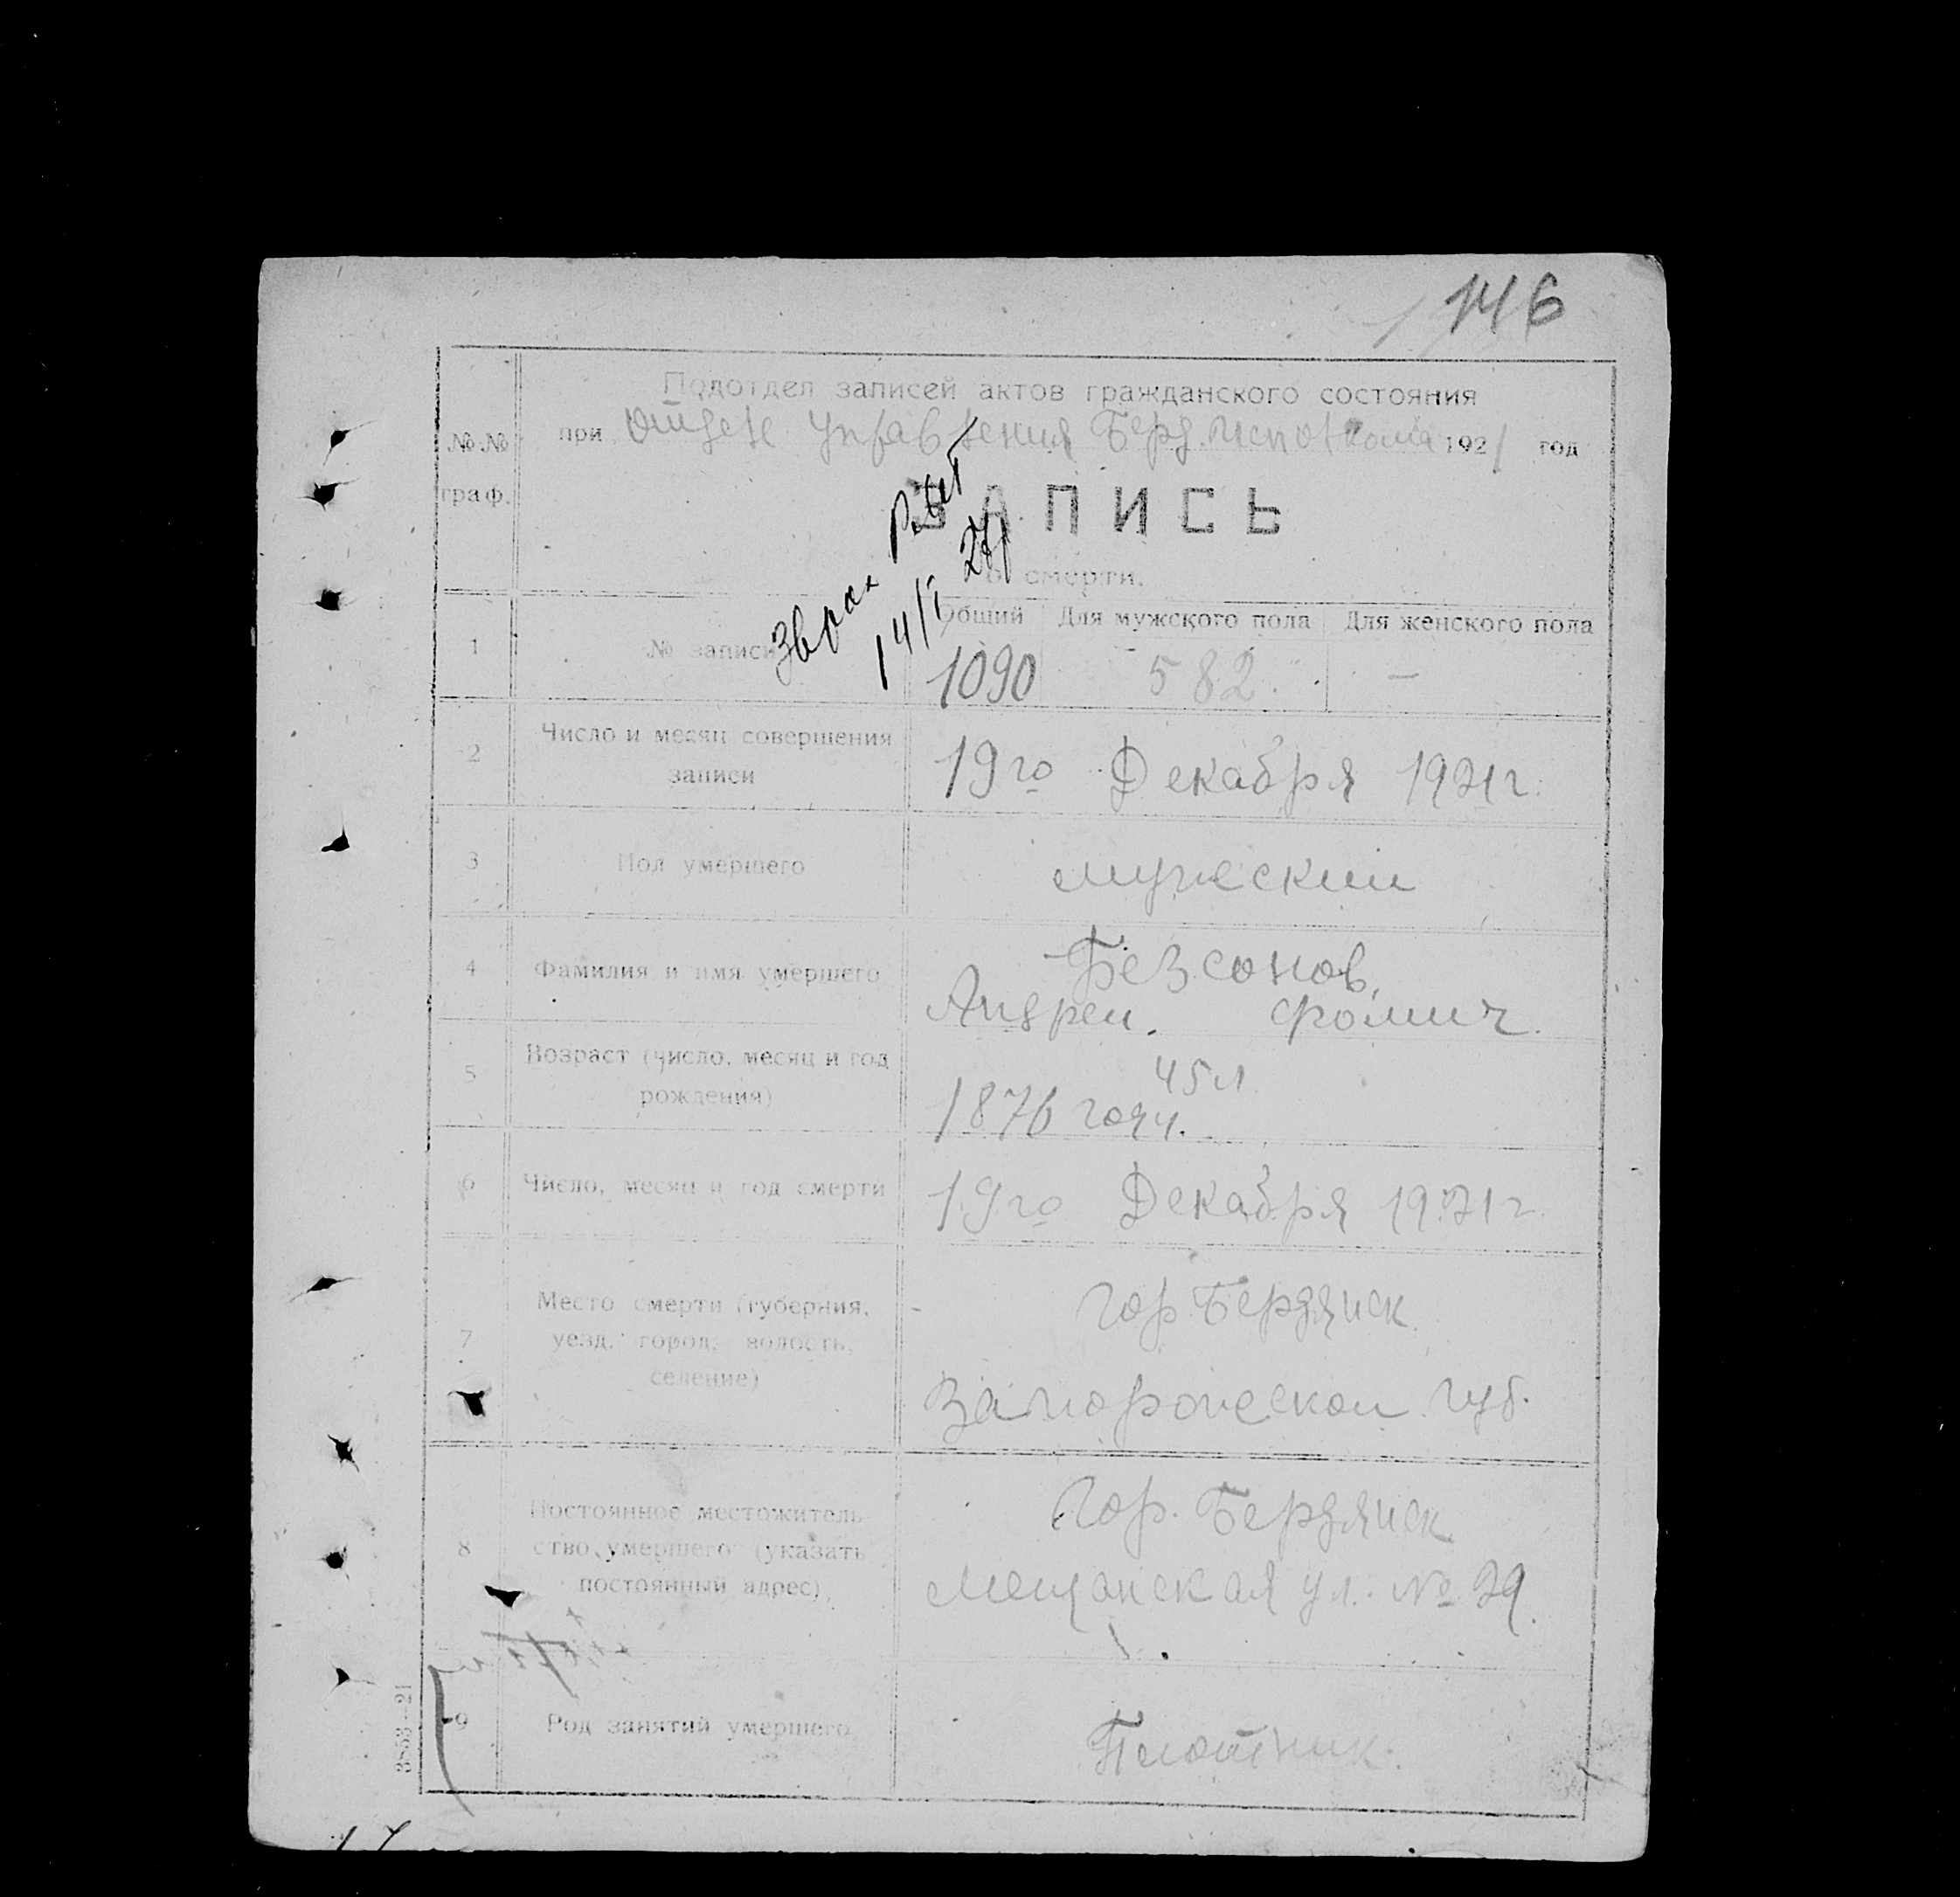 146
Подотдел записей актов гражданского состояния
при Отделе Управления Берд. Исполкома 1921 год
№№ граф.
ЗАПИСЬ
о смерти.
14/I 27
1 № записи
Общий Для мужского пола Для женского пола
1090 582. —
2 Число и месяц совершения записи
19го Декабря 1921 г.
3 Пол умершего
мужеский
4 Фамилия и имя умершего
Безсонов,
Андрей. Фомич.
5 Возраст (число, месяц и год рождения)
45 л
1876 году.
6 Число, месяц и год смерти
19го Декабря 1921 г.
7 Место смерти (губерния, уезд, город, волость, селение)
гор. Бердянск.
Запорожеской губ.
8 Постоянное местожительство умершего (указать постоянный адрес)
Гор. Бердянск
Мещанская ул. № 29.
9 Род занятий умершего
Плотник.
3853—21